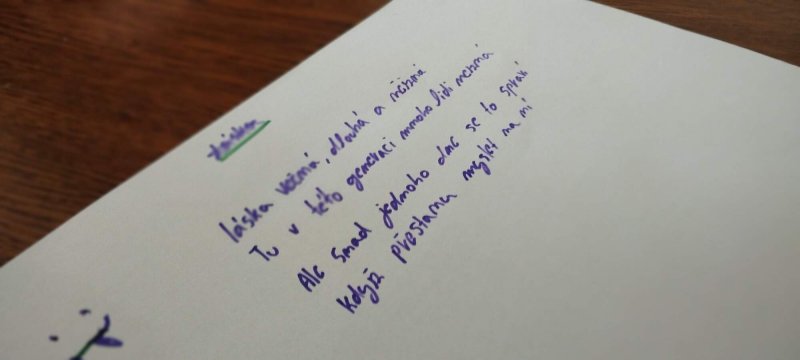 láska
láska věčná, dlouhá a něžná
Tu v této generaci mnoho lidí nezná
Ale snad jednoho dne se to spraví
když přestanu myslet na ní